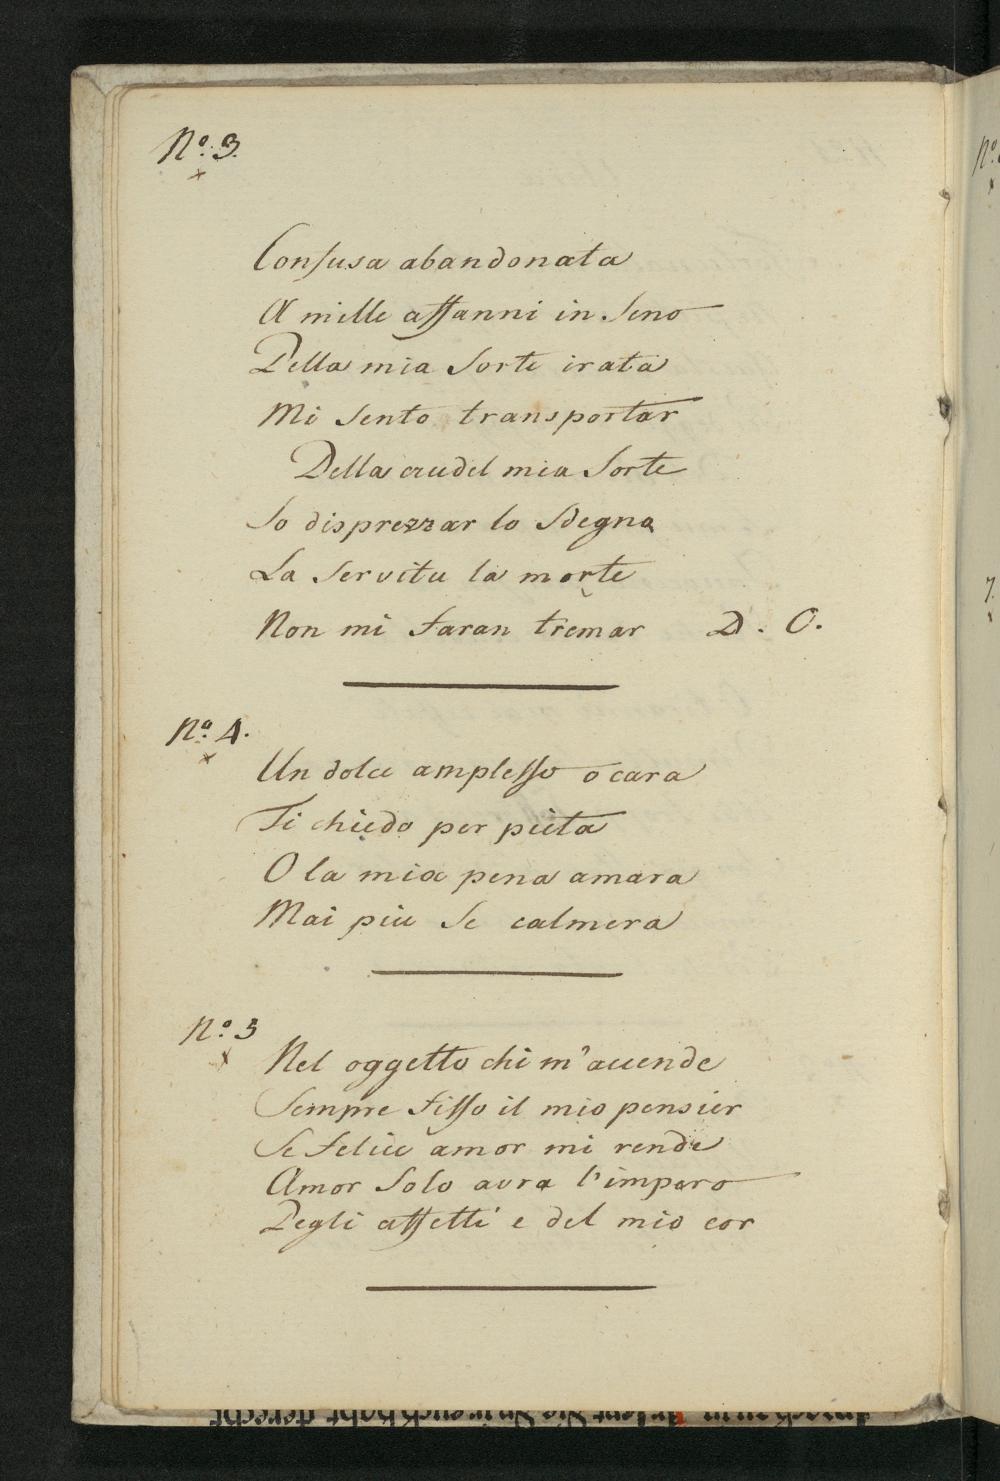 No: 3.
Confusa abandonata
A mille affanni in Seno
Della mia Sorte irata
Mi Sento transportar
Della crudel mia Sorte
So disprezzar lo Sdegno
La Servitu la morte
Non mi faran tremar D. C.
No: 4.
Un dolce amplesso o cara
Ti chiedo per pieta
O la mia pena amara
Mai piu Se calmera
No: 5
Nel oggetto chi m'accende
Sempre fisso il mio pensier
Se felice amor mi rende
Amor Solo avra l'impero
Degli affetti e del mio cor